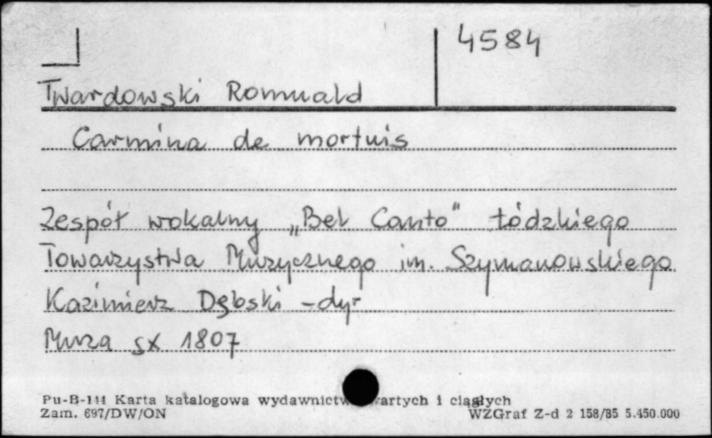 4584
Twardowski Romuald
Carmina de mortuis
Zespół wokalny „Bel Canto" Łódzkiego
Towarzystwa Muzycznego im. Szymanowskiego
Kazimierz Dębski - dyr
Muza sx 1807
Pu-B-144 Karta katalogowa wydawnictw zwartych i ciągłych
Zam. 697/DW/ON WZGraf Z-d 2 158/85 5.450.000